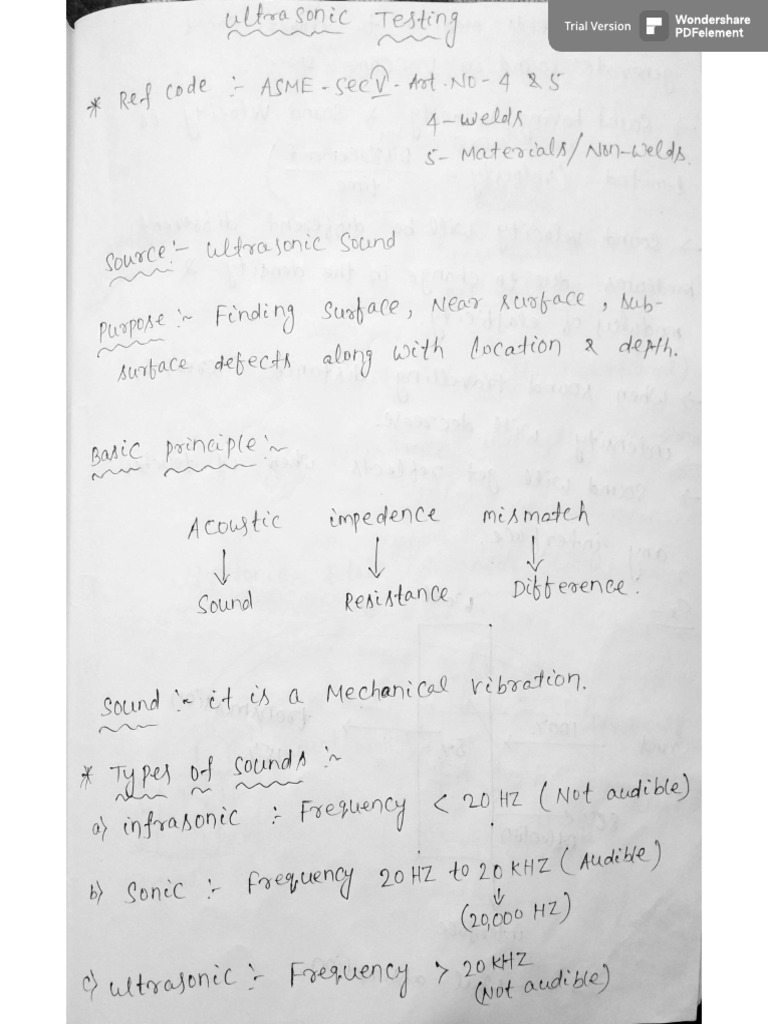 Ultrasonic Testing
Trial Version Wondershare PDFelement
* Ref code :- ASME - Sec V - Art. No - 4 & 5
4 - welds
5 - Materials/Non-welds.
Source :- Ultrasonic Sound
Purpose :- Finding Surface, Near surface, sub-
surface defects along with location & depth.
Basic principle :-
Acoustic impedence mismatch
↓ ↓ ↓
Sound Resistance, Difference.
Sound :- it is a Mechanical vibration.
* Types of Sounds :-
a) infrasonic :- Frequency < 20 HZ (Not audible)
b) Sonic :- Frequency 20 HZ to 20 KHZ (Audible)
↓
(20,000 HZ)
c) ultrasonic :- Frequency > 20 KHZ
(Not audible)